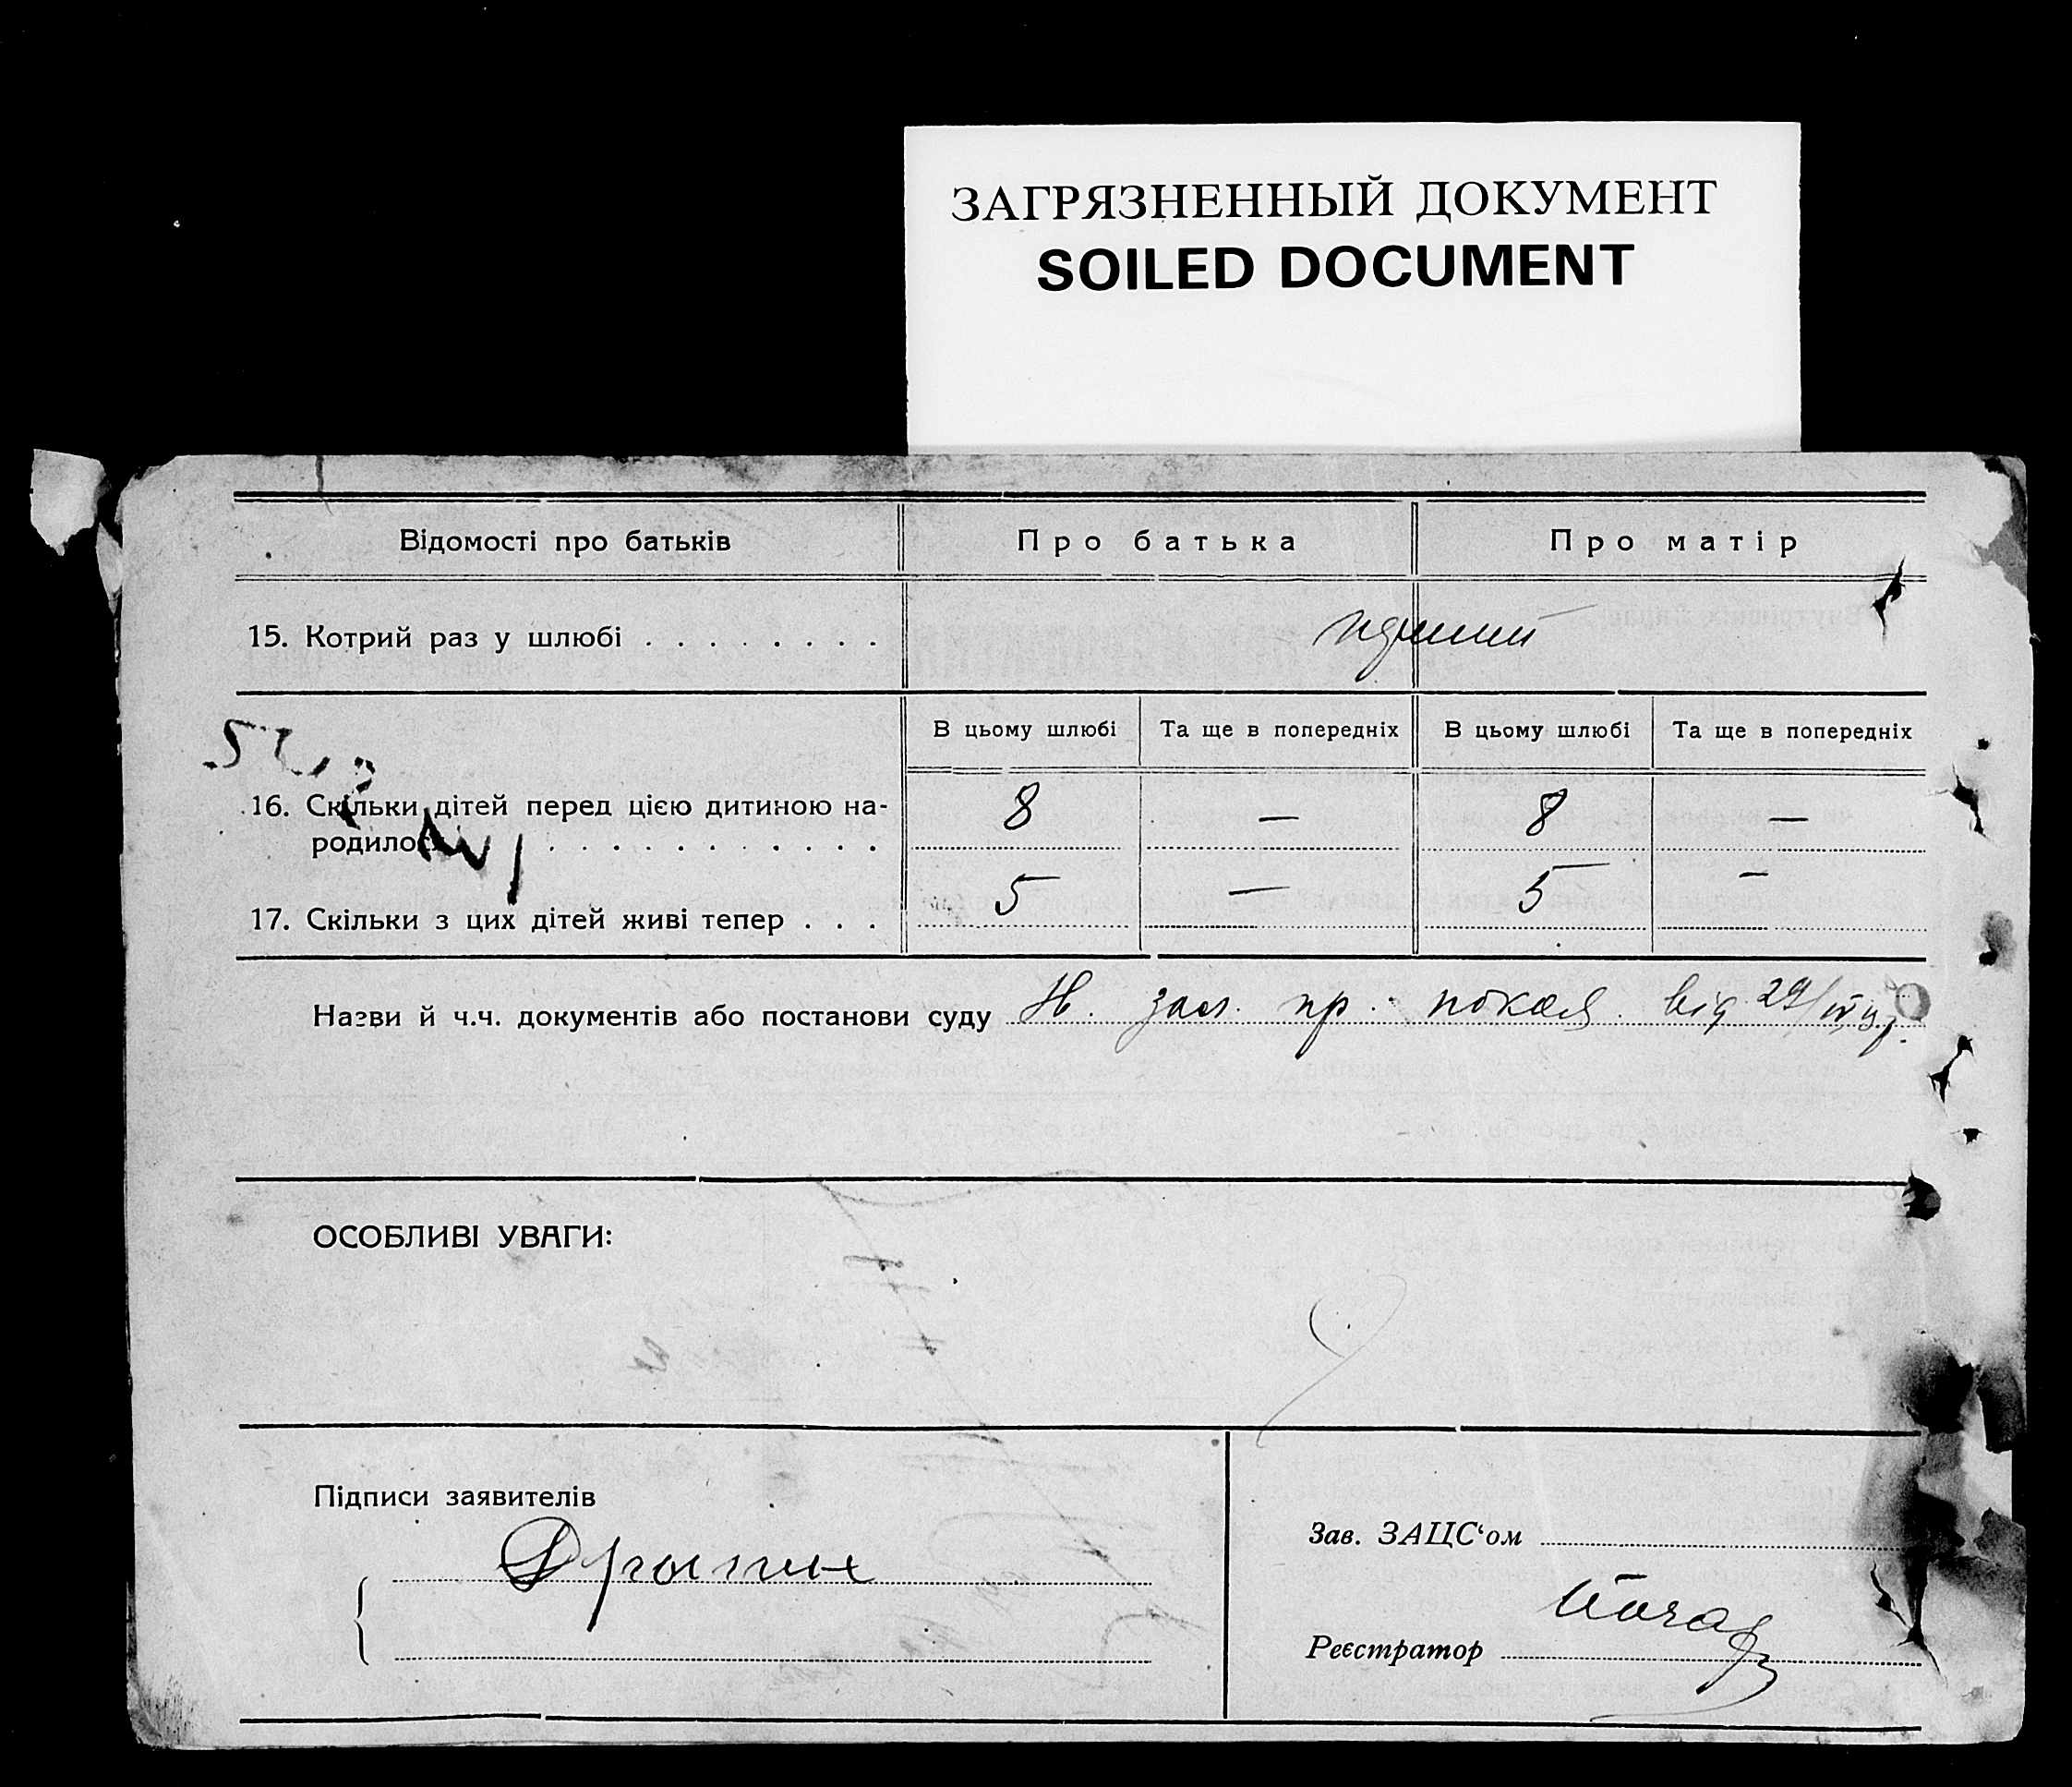 ЗАГРЯЗНЕННЫЙ ДОКУМЕНТ
SOILED DOCUMENT
Відомості про батьків Про батька Про матір
15. Котрий раз у шлюбі . . . . . . . .
В цьому шлюбі Та ще в попередніх В цьому шлюбі Та ще в попередніх
16. Скільки дітей перед цією дитиною на- 8 — 8 —
родилось . . . . . . . . . . .
17. Скільки з цих дітей живі тепер . . . 5 — 5 —
Назви й ч.ч. документів або постанови суду Н. пр. від 29/IV
ОСОБЛИВІ УВАГИ:
Підписи заявителів
Зав. ЗАЦС‘ом
Реєстратор